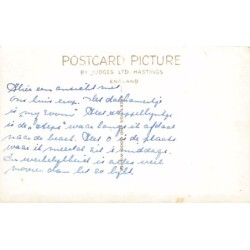 POSTCARD PICTURE
BY JUDGES LTD HASTINGS
ENGLAND
Hier een ansicht met
ons huis erop. Het dakkamertje
is "my room" Het stippellijntje
is de "steps" waar langs ik afdaal
naar de beach. Het 0 is de plaats
waar ik meestal zit 's middags.
In werkelijkheid is alles veel
mooier dan het zo lijkt.